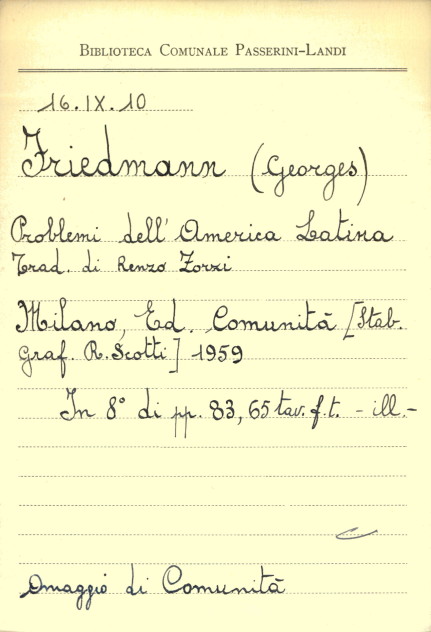 BIBLIOTECA COMUNALE PASSERINI-LANDI
16.IX.10
Friedmann (Georges)
Problemi dell'America Latina
Trad. di Renzo Zorzi
Milano, Ed. Comunità [Stab.
Graf. R. Scotti] 1959
In 8° di pp. 83, 65 tav. f. t. - ill. -
Omaggio di Comunità